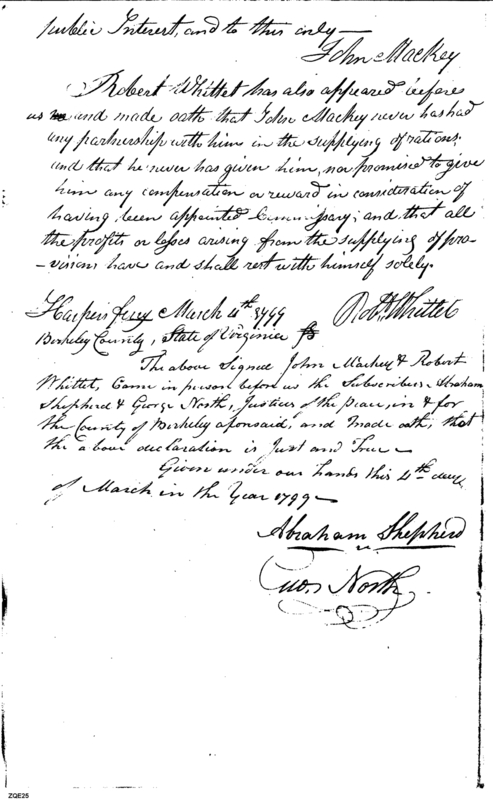 public Interest, and to this only —
John Mackey
Robert Whittet has also appeared before
us and made oath that John Mackey never has had
any partnership with him in the supplying of rations,
and that he never has given him, nor promised to give
him any compensation or reward in consideration of
having been appointed Commissary; and that all
the profits or losses arising from the supplying of pro-
-visions have and shall rest with himself solely.
Harpers ferry March 4th 1799 Robt. Whittet
Berkeley County, State of Virginia Ss
The above Signed John Mackey & Robert
Whittet, Came in person before us the Subscribers Abraham
Shepherd & George North, Justices of the peace, in & for
the County of Berkeley aforesaid, and made oath, that
the above declaration is Just and True —
Given under our hands this 4th day
of March in the Year 1799 —
Abraham Shepherd
Geo. North
ZQE25